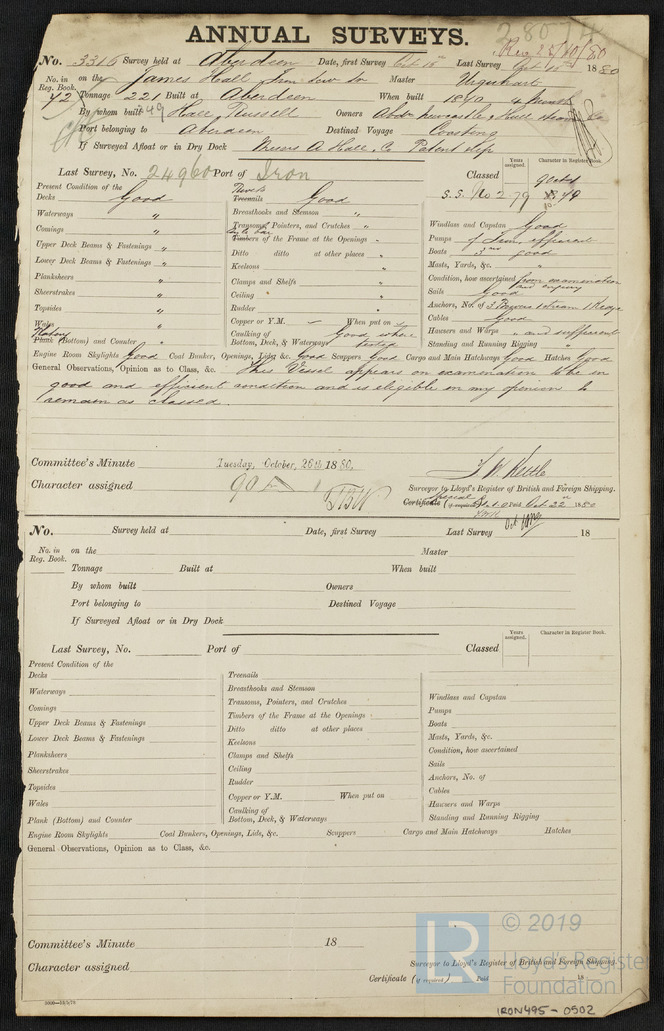 ANNUAL SURVEYS.
Rec 25/10/80
No. 3316 Survey held at Aberdeen Date, first Survey Oct 18th Last Survey 1880
No. in Reg. Book. on the James Hall, Iron Master Urquhart
42 Tonnage 221 Built at Aberdeen When built
By whom built Hall Russell Owners
Port belonging to Aberdeen Destined Voyage Coasting
If Surveyed Afloat or in Dry Dock Messrs A Hall & Co Patent slip
Years assigned. Character in Register Book.
Last Survey, No. 24960 Port of Iron Classed
S.S. No 2 79
Present Condition of the
Decks Good
Waterways "
Comings "
Upper Deck Beams & Fastenings "
Lower Deck Beams & Fastenings "
Planksheers "
Sheerstrakes "
Topsides "
Wales "
Plank (Bottom) and Counter "
Rivets
Treenails Good
Breasthooks and Stemson "
Transoms, Pointers, and Crutches "
Timbers of the Frame at the Openings "
Ditto ditto at other places "
Keelsons "
Clamps and Shelfs "
Ceiling "
Rudder "
Copper or Y.M. When put on
Caulking of Bottom, Deck, & Waterways Good where tested
Windlass and Capstan Good
Pumps of Iron, efficient
Boats 3 good
Masts, Yards, &c. "
Condition, how ascertained from examination and enquiry
Sails Good
Anchors, No. of 3 Bowers 1 Stream 1 Kedge
Cables Good
Hawsers and Warps " and sufficient
Standing and Running Rigging "
Engine Room Skylights Good Coal Bunkers, Openings, Lids, &c. Good Scuppers Good Cargo and Main Hatchways Good Hatches Good
General Observations, Opinion as to Class, &c. This Vessel appears on examination to be in
good and efficient condition and is eligible in my opinion to
remain as classed.
Committee's Minute Tuesday, October, 26th 1880.
Character assigned 90
Surveyor to Lloyd's Register of British and Foreign Shipping.
Certificate (if required) Oct 22nd 1880
No. Survey held at Date, first Survey Last Survey 18
No. in Reg. Book. on the Master
Tonnage Built at When built
By whom built Owners
Port belonging to Destined Voyage
If Surveyed Afloat or in Dry Dock
Years assigned. Character in Register Book.
Last Survey, No. Port of Classed
Present Condition of the
Decks
Waterways
Comings
Upper Deck Beams & Fastenings
Lower Deck Beams & Fastenings
Planksheers
Sheerstrakes
Topsides
Wales
Plank (Bottom) and Counter
Treenails
Breasthooks and Stemson
Transoms, Pointers, and Crutches
Timbers of the Frame at the Openings
Ditto ditto at other places
Keelsons
Clamps and Shelfs
Ceiling
Rudder
Copper or Y.M. When put on
Caulking of Bottom, Deck, & Waterways
Windlass and Capstan
Pumps
Boats
Masts, Yards, &c.
Condition, how ascertained
Sails
Anchors, No. of
Cables
Hawsers and Warps
Standing and Running Rigging
Engine Room Skylights Coal Bunkers, Openings, Lids, &c. Scuppers Cargo and Main Hatchways Hatches
General Observations, Opinion as to Class, &c.
Committee's Minute 18
Character assigned
Surveyor to Lloyd's Register of British and Foreign Shipping.
Certificate (if required) Paid 18
© 2019
LR Lloyd's Register
Foundation
IRON495-0502